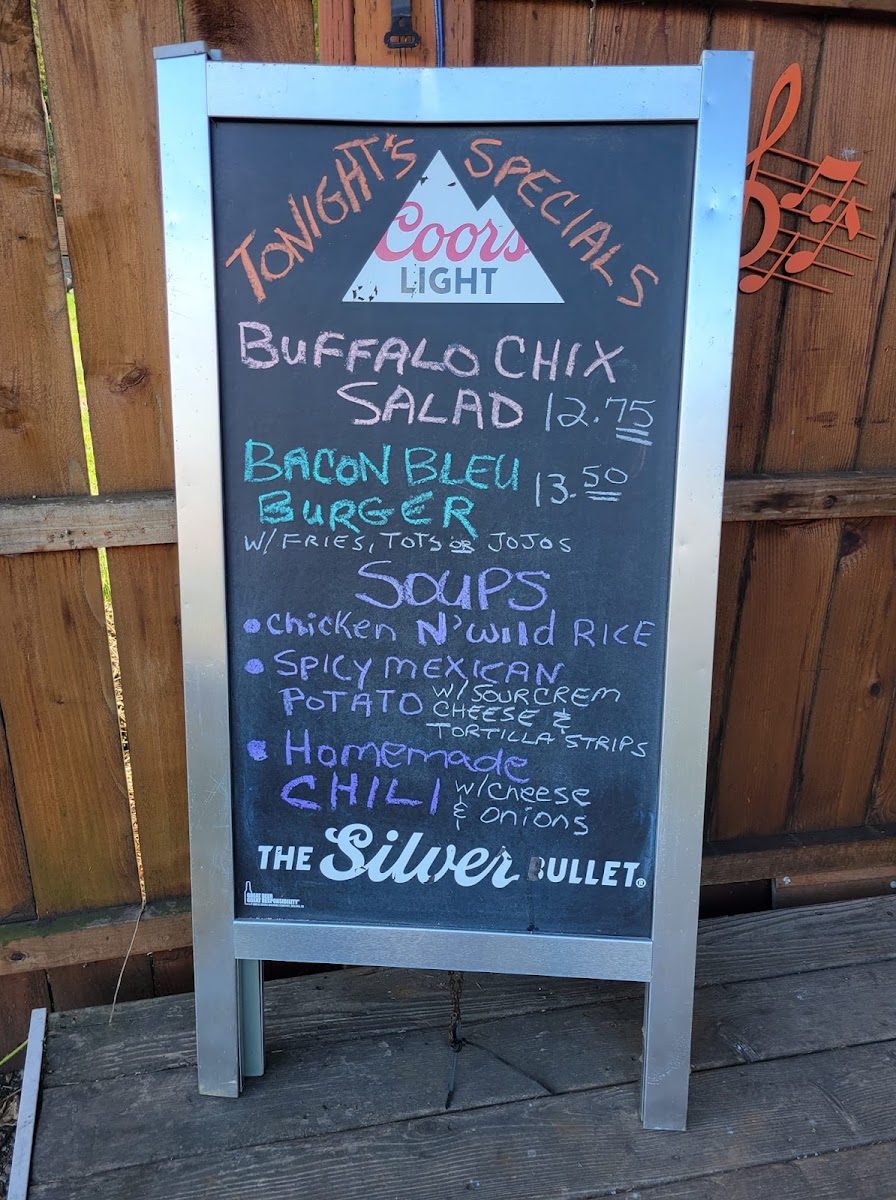 TONIGHT'S SPECIALS
Coors
LIGHT
BUFFALO CHIX
SALAD 12.75
BACON BLEU
BURGER 13.50
W/ FRIES, TOTS OR JOJOS
SOUPS
• Chicken N' Wild RICE
• SPICY MEXICAN
POTATO W/ SOUR CREM
CHEESE &
TORTILLA STRIPS
• Homemade
CHILI w/ cheese
& onions
THE Silver BULLET®
GREAT BEER
GREAT RESPONSIBILITY